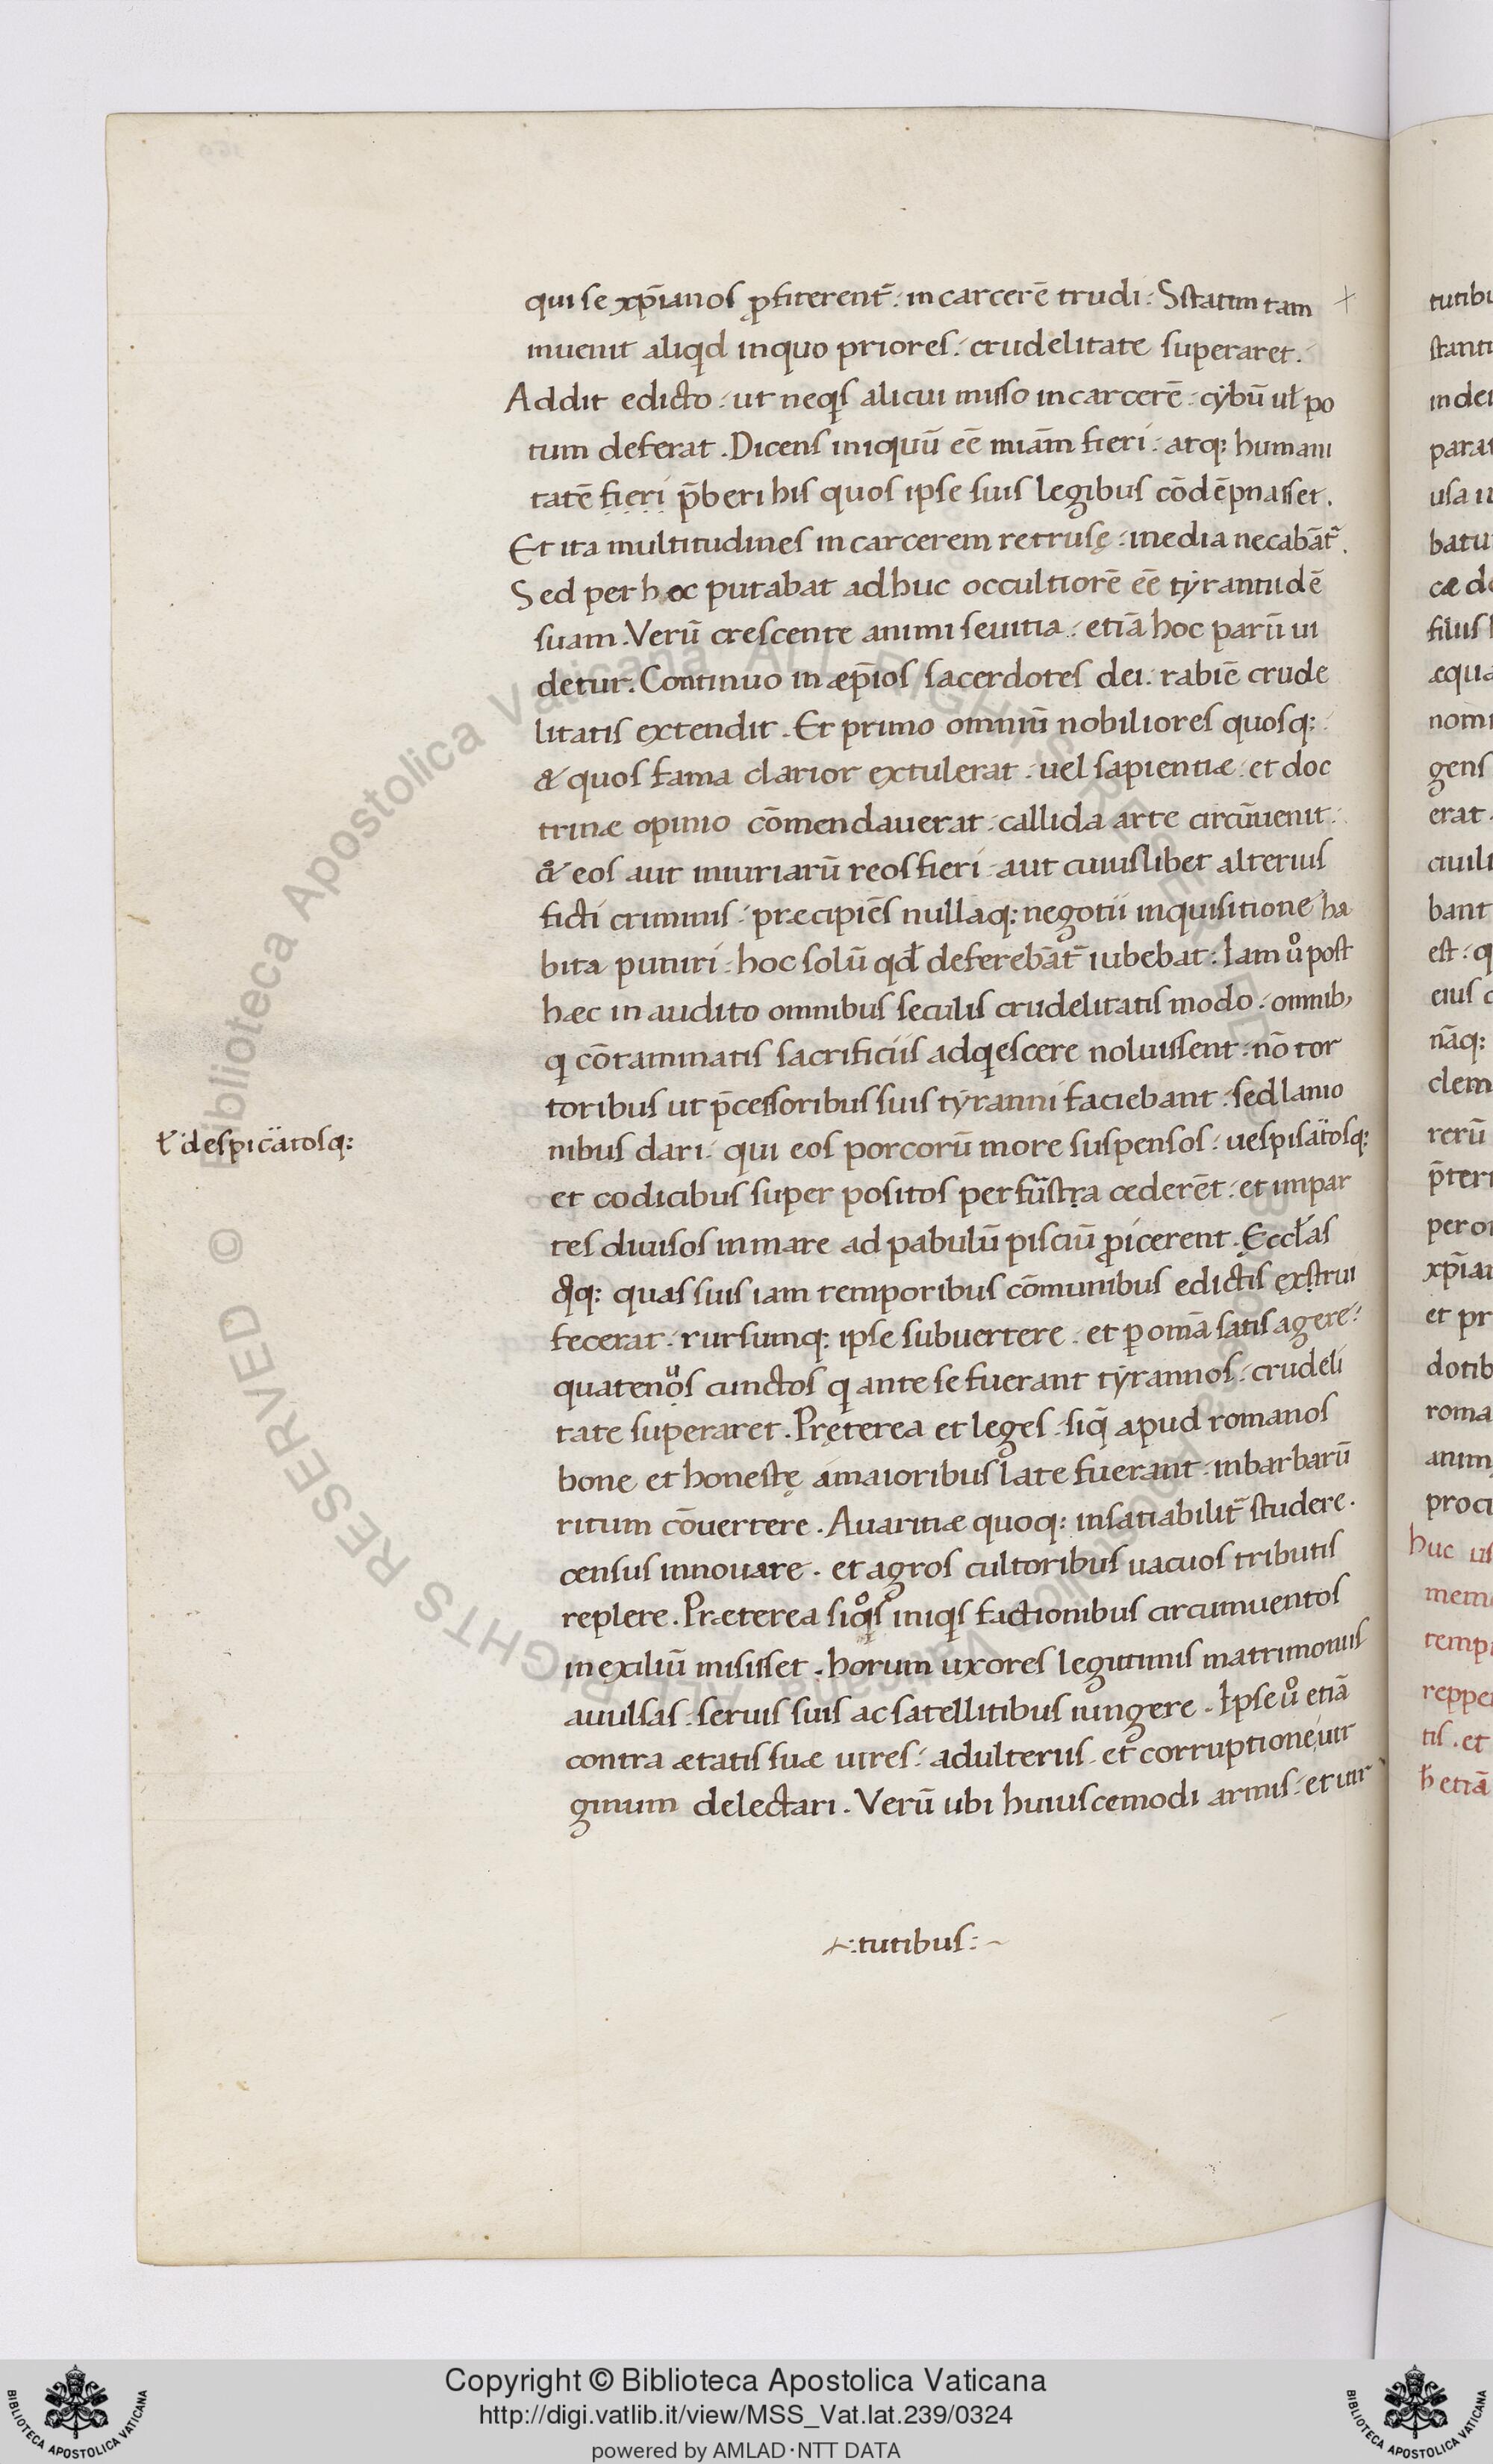 qui se xp̄ianos ꝓfiterent᷑. in carcerē trudi. Sstatim tam
inuenit aliqd in quo priores. crudelitate superaret.
Addit edicto. ut neqs alicui misso in carcerē. cybū uł po
tum deferat. Dicens iniquū eē miām fieri. atq: humani
tatē fieri p̄beri his quos ipse suis legibus cōdēpnasset.
Et ita multitudines in carcerem retrusę. inedia necabāt᷑.
Sed per hoc putabat adhuc occultiorē eē tyrannidē
suam. Verū crescente animi seuitia. etiā hoc parū ui
detur. Continuo in æp̄ios sacerdotes dei. rabiē crude
litatis extendit. Et primo omniū nobiliores quosq:
& quos fama clarior extulerat. uel sapientiæ. et doc
trinæ opinio cōmendauerat. callida arte circūuenit.
& eos aut iniuriarū reos fieri. aut cuiuslibet alterius
ficti criminis. præcipiēs nullaq: negotii inquisitione ha
bita puniri. hoc solū qđ deferebāt᷑ iubebat. Iam uͦ post
hæc in audito omnibus seculis crudelitatis modo. omnib,
q cōtaminatis sacrificiis adqescere noluissent. nō tor
toribus ut p̄cessoribus suis tyranni faciebant. sed lanio
nibus dari. qui eos porcorū more suspensos. uespisatosq:
ł despicatosq:
et codicibus super positos per fūstra cederēt. et in par
tes diuisos in mare ad pabulū pisciū ꝓicerent. Ecclas
qq: quas suis iam temporibus cōmunibus edictis exstrui
fecerat. rursumq: ipse subuertere. et ꝑ omā satis agere.
quatenus cunctos q ante se fuerant tyrannos. crudeli
tate superaret. Pręterea et leges. siq̄ apud romanos
bone et honestę a maioribus late fuerant. in barbarū
ritum cōuertere. Auaritiæ quoq: insatiabilit᷑ studere.
census innouare. et agros cultoribus uacuos tributis
replere. Præterea siqͦs iniqs factionibus circumuentos
in exiliū misisset. horum uxores legitimis matrimoniis
auulsas. seruis suis ac satellitibus iungere. Ipse uͦ etiā
contra ætatis suæ uires. adulteriis. et corruptione uir
ginum delectari. Verū ubi huiuscemodi armis. et uir
tutibus:
tutibu
stanti
in dei
parat
usa iu
batu
cæ de
filius
æqua
nomi
gens
erat.
ciuili
bant
est. q
eius c
nāq:
clem
rerū
p̄teri
per o
xp̄ia
et pr
dotib
roma
anim
procu
huc us
mem
temp
reppe
tis. et
etiā
Copyright © Biblioteca Apostolica Vaticana
http://digi.vatlib.it/view/MSS_Vat.lat.239/0324
powered by AMLAD·NTT DATA